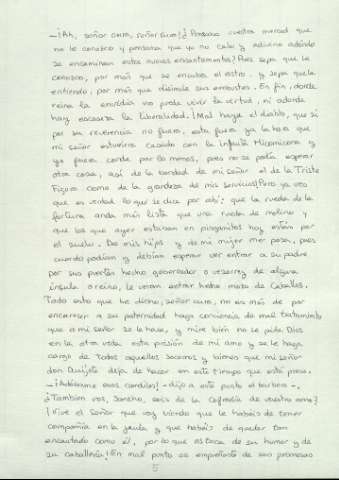 —¡Ah, señor cura, señor cura! ¿Pensaba vuestra merced que
no le conozco y pensará que yo no calo y adivino adónde
se encaminan estos nuevos encantamentos? Pues sepa que le
conozco, por más que se encubra el rostro, y sepa que le
entiendo, por más que disimule sus embustes. En fin, donde
reina la envidia no puede vivir la virtud, ni adonde
hay escaseza la liberalidad. ¡Mal haya el diablo, que si
por su reverencia no fuera, esta fuera ya la hora que
mi señor estuviera casado con la infanta Micomicona y
yo fuera conde por lo menos, pues no se podía esperar
otra cosa, así de la bondad de mi señor el de la Triste
Figura como de la grandeza de mis servicios! Pero ya veo
que es verdad lo que se dice por ahí: que la rueda de la
fortuna anda más lista que una rueda de molino y
que los que ayer estaban en pinganitos hoy están por
el suelo. De mis hijos y de mi mujer me pesa, pues
cuando podían y debían esperar ver entrar a su padre
por sus puertas hecho gobernador o visorrey de alguna
ínsula o reino, le verán entrar hecho mozo de caballos.
Todo esto que he dicho, señor cura, no es más de por
encarecer a su paternidad haga conciencia del mal tratamiento
que a mi señor se le hace, y mire bien no le pida Dios
en la otra vida esta prisión de mi amo y se le haga
cargo de todos aquellos socorros y bienes que mi señor
don Quijote deja de hacer en este tiempo que está preso.
—¡Adóbame esos candiles! —dijo a este punto el barbero—.
¿También vos, Sancho, sois de la cofradía de vuestro amo?
¡Vive el Señor que voy viendo que le habéis de tener
compañía en la jaula y que habéis de quedar tan
encantado como él, por lo que os toca de su humor y de
su caballería! En mal punto os empreñastes de sus promesas
5